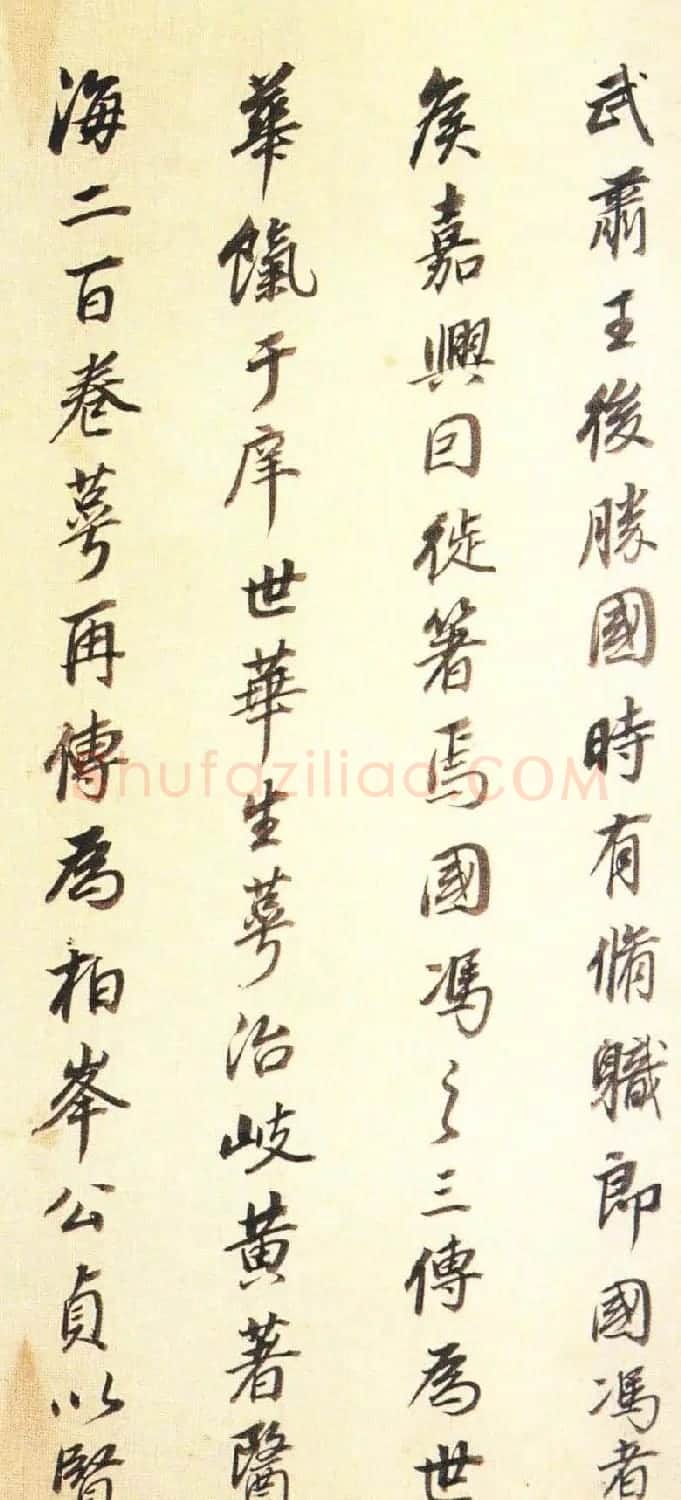 武肅王後勝國時有脩職郎國馮者
矦嘉興囙徙箸焉國馮之三傳為世
華餼于庠世華生萼治岐黃著醫
海二百卷萼再傳為柏峯公貞以賢
shufaziliao.COM